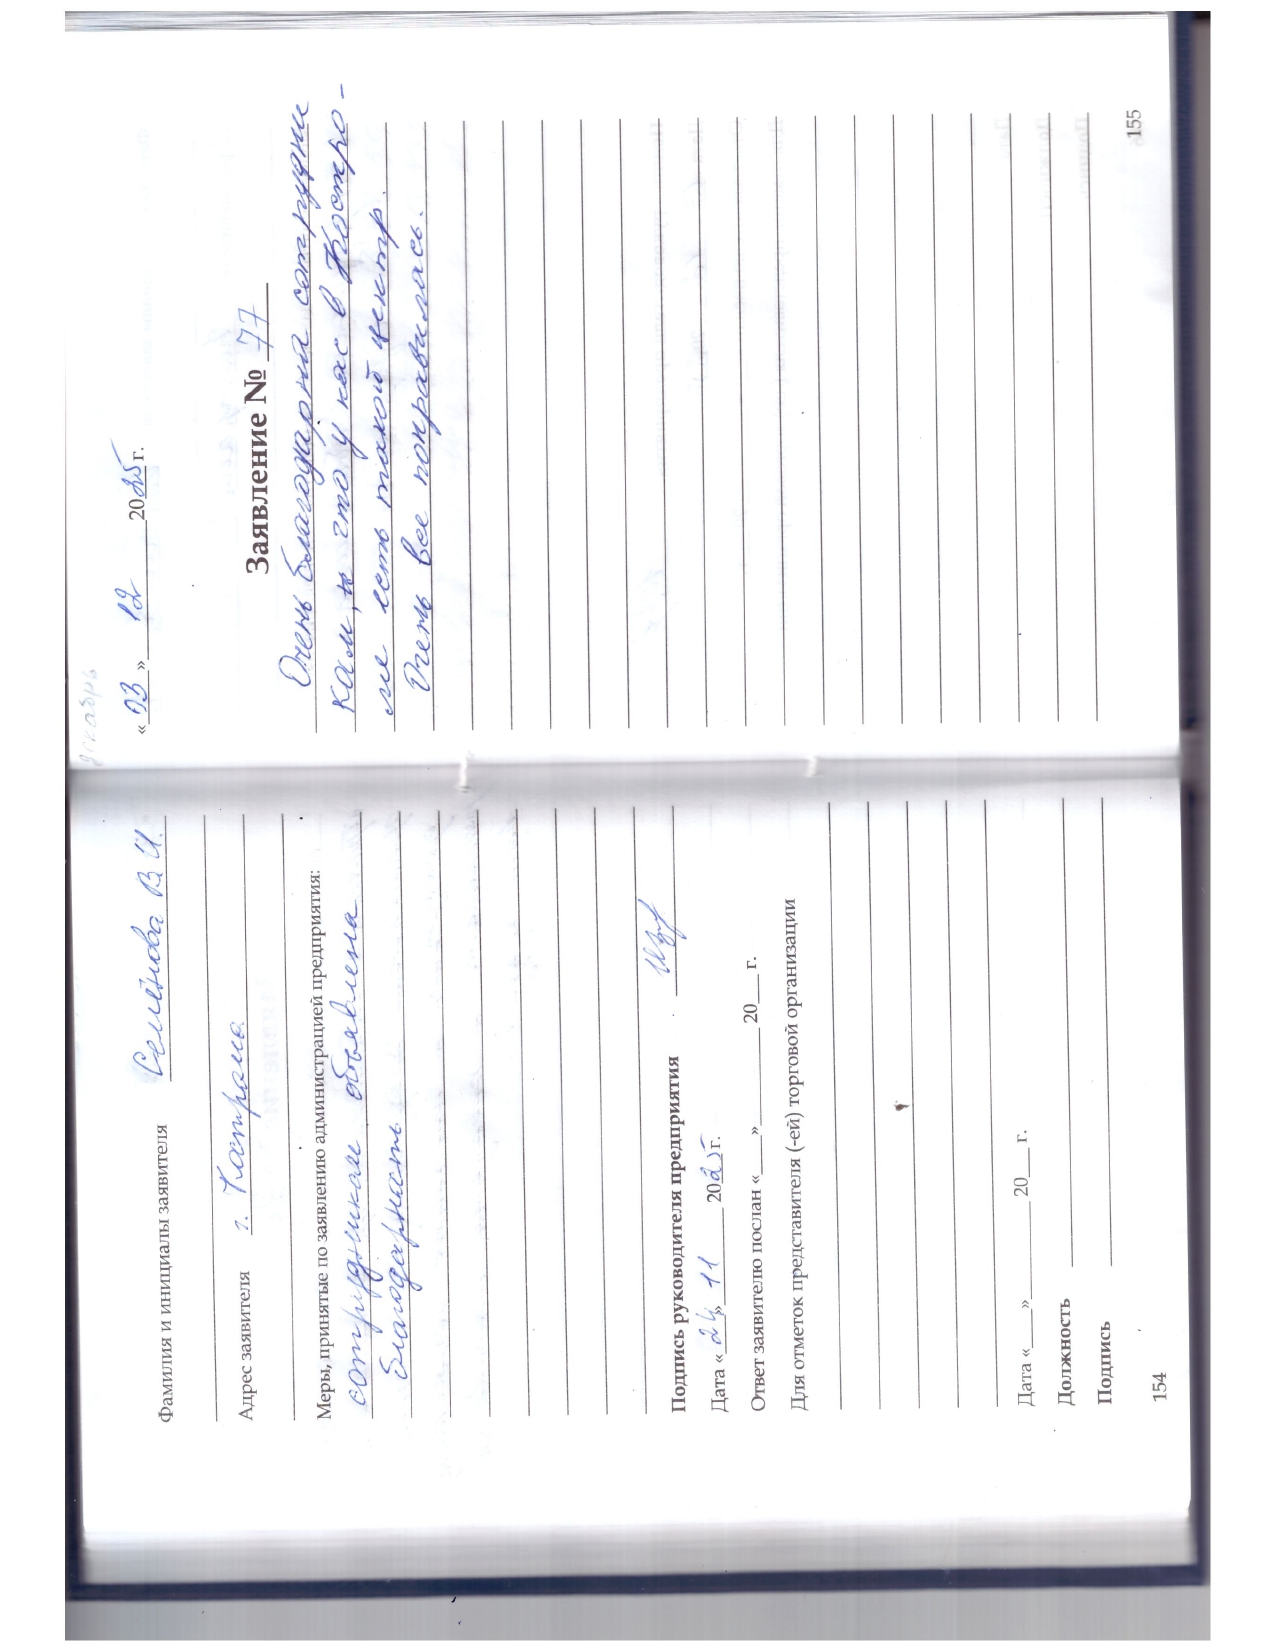 Фамилия и инициалы заявителя Семёнова В.И.
Адрес заявителя г. Кострома
Меры, принятые по заявлению администрацией предприятия:
сотрудникам объявлена
благодарность
Подпись руководителя предприятия
Дата «24» 11 2025 г.
Ответ заявителю послан «___»__________ 20___ г.
Для отметок представителя (-ей) торговой организации
Дата «____»__________ 20___ г.
Должность
Подпись
154
декабрь
«03» 12 2025 г.
Заявление № 77
Очень благодарна сотрудни
кам, что у нас в Костро-
ме есть такой центр.
Очень все понравилась.
155